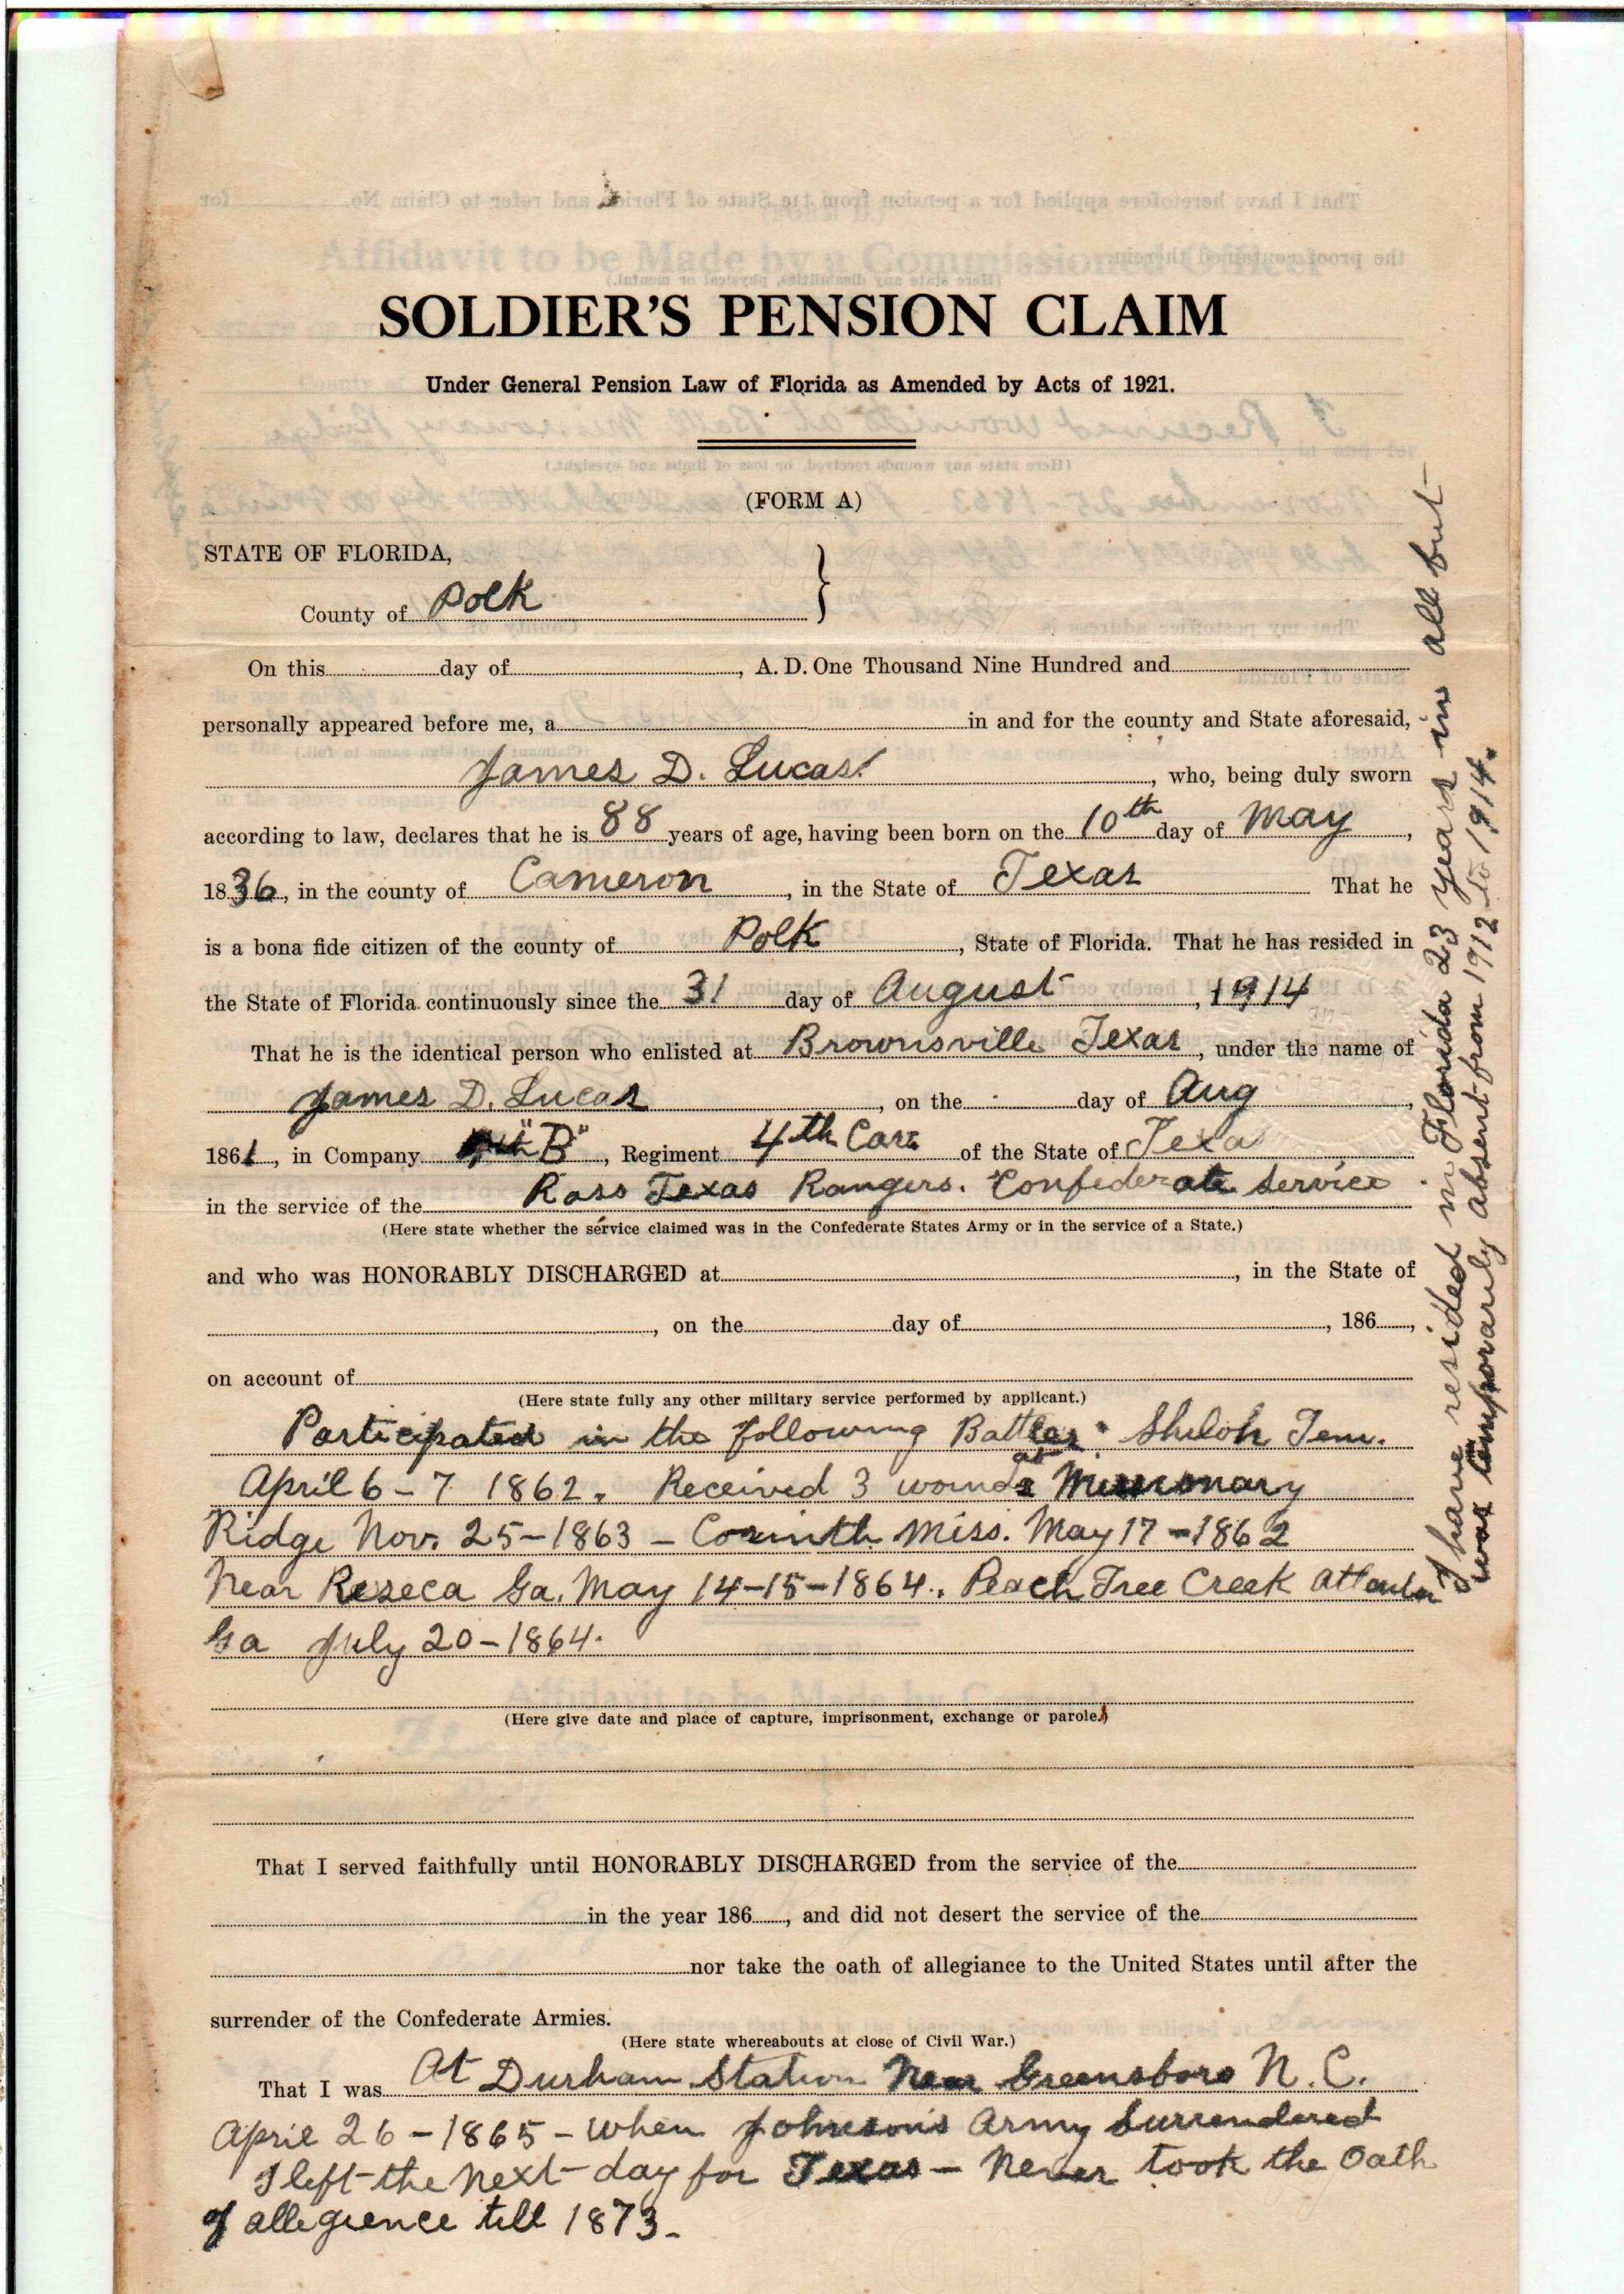 SOLDIER'S PENSION CLAIM
Under General Pension Law of Florida as Amended by Acts of 1921.
(FORM A)
STATE OF FLORIDA,
County of Polk
On this day of , A. D. One Thousand Nine Hundred and
personally appeared before me, a in and for the county and State aforesaid,
James D. Lucas , who, being duly sworn
according to law, declares that he is 88 years of age, having been born on the 10th day of May ,
1836, in the county of Cameron , in the State of Texas That he
is a bona fide citizen of the county of Polk , State of Florida. That he has resided in
the State of Florida continuously since the 31 day of August , 1914
That he is the identical person who enlisted at Brownsville Texas , under the name of
James D. Lucas , on the day of Aug ,
1861, in Company "B" , Regiment 4th of the State of Texa
in the service of the Ross Texas Rangers. Confederate Service
(Here state whether the service claimed was in the Confederate States Army or in the service of a State.)
and who was HONORABLY DISCHARGED at , in the State of
, on the day of , 186 ,
on account of
(Here state fully any other military service performed by applicant.)
Participated in the following Battles: Shiloh Tenn.
April 6-7 1862. Received 3 wounds at Missionary
Ridge Nov. 25-1863 - Corinth Miss. May 17-1862
Near Reseca Ga. May 14-15-1864. Peach Tree Creek Atlanta
Ga July 20-1864.
(Here give date and place of capture, imprisonment, exchange or parole.)
That I served faithfully until HONORABLY DISCHARGED from the service of the
in the year 186 , and did not desert the service of the
nor take the oath of allegiance to the United States until after the
surrender of the Confederate Armies.
(Here state whereabouts at close of Civil War.)
That I was At Durham Station Near Greensboro N. C.
April 26-1865 - when Johnson's Army Surrendered
I left the next day for Texas - Never took the Oath
of allegience till 1873.
I have resided in Florida 23 years in all but
was temporarily absent from 1912 to 1914.